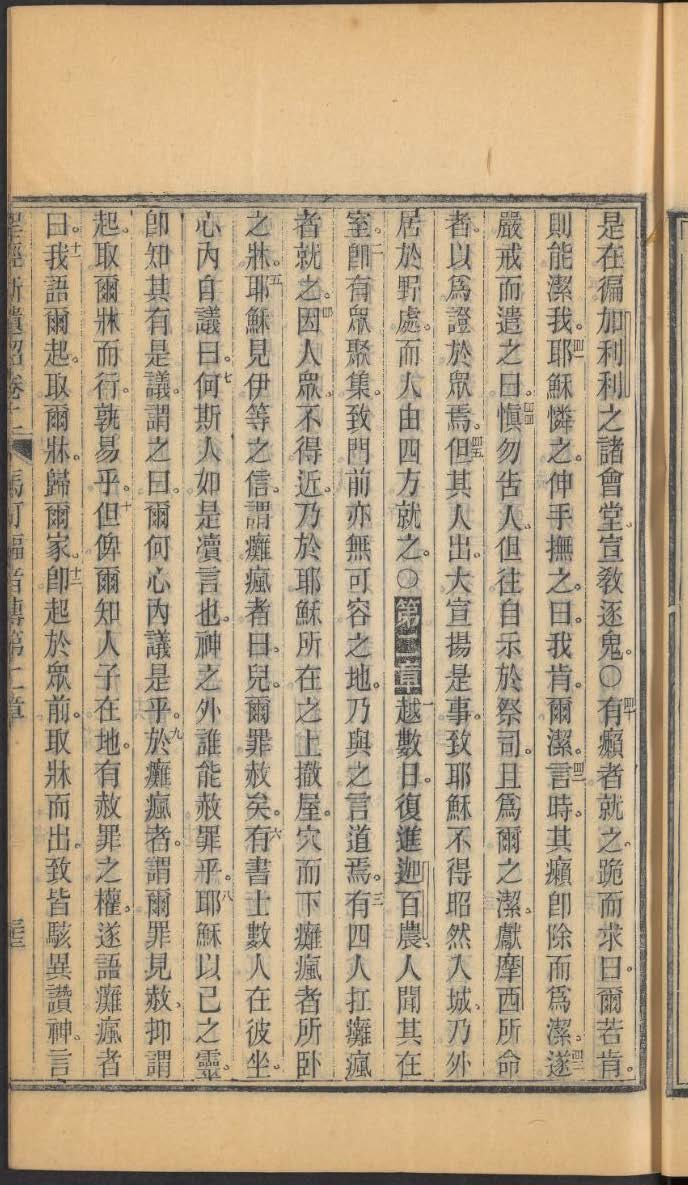 是在徧加利利之諸會堂宣敎逐鬼〇四十有癩者就之跪而求曰爾若肯
則能潔我四一耶穌憐之伸手撫之曰我肯爾潔四二言時其癩卽除而爲潔四三遂
嚴戒而遣之曰四四愼勿吿人但往自示於祭司且爲爾之潔獻摩西所命
者以爲證於眾焉四五但其人出大宣揚是事致耶穌不得昭然入城乃外
居於野處而人由四方就之〇第二章一越數日復進迦百農人聞其在
室二卽有眾聚集致門前亦無可容之地乃與之言道焉三有四人扛癱瘋
者就之四因人眾不得近乃於耶穌所在之上撤屋穴而下癱瘋者所臥
之牀五耶穌見伊等之信謂癱瘋者曰兒爾罪赦矣六有書士數人在彼坐
心內自議曰七何斯人如是瀆言也神之外誰能赦罪乎八耶穌以己之靈
卽知其有是議謂之曰爾何心內議是乎九於癱瘋者謂爾罪見赦抑謂
起取爾牀而行孰易乎十但俾爾知人子在地有赦罪之權遂語癱瘋者
曰十一我語爾起取爾牀歸爾家十二卽起於眾前取牀而出致皆駭異讚神言
聖經新遺詔卷二 馬可福音傳第二章 三